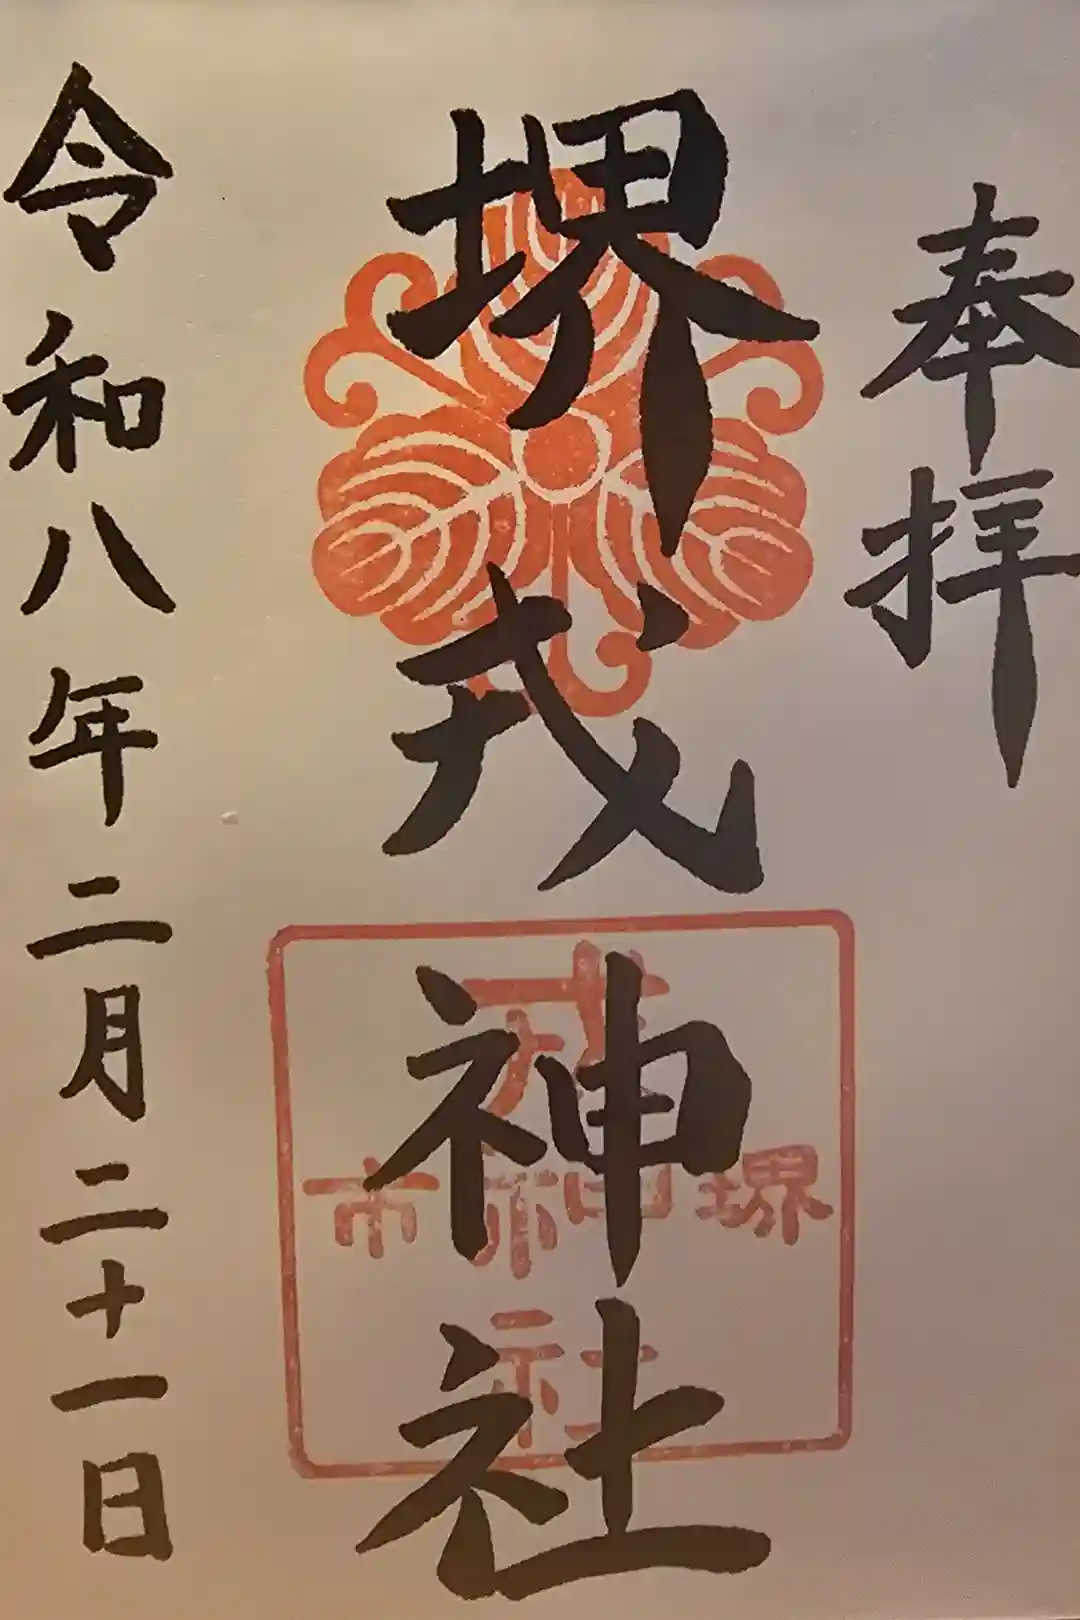 奉拝
堺戎神社
堺市
戎神社
令和八年二月二十一日